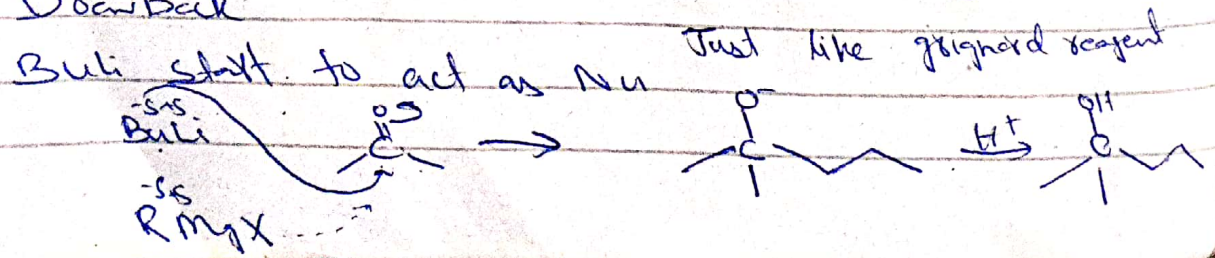 Drawback
BuLi start to act as Nu
Just like grignard reagent
-δ +δ
BuLi
O
C
O-
C
H+
OH
C
-δ δ
R Mg X